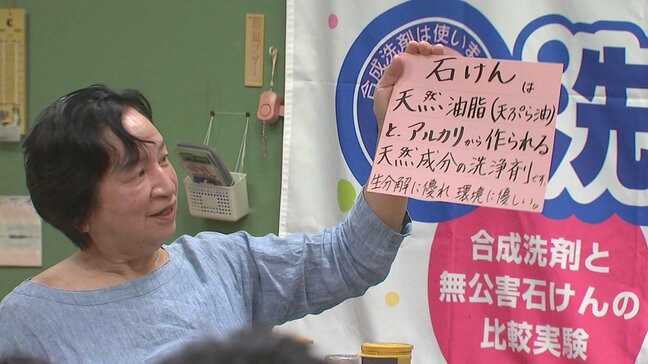 石けんは
天然油脂(天ぷら油)
と、アルカリから作られる
天然成分の洗浄剤です。
生分解に優れ環境に優しい。
合成洗剤は使いま
洗
合成洗剤と
無公害石けんの
比較実験
防犯ブザー